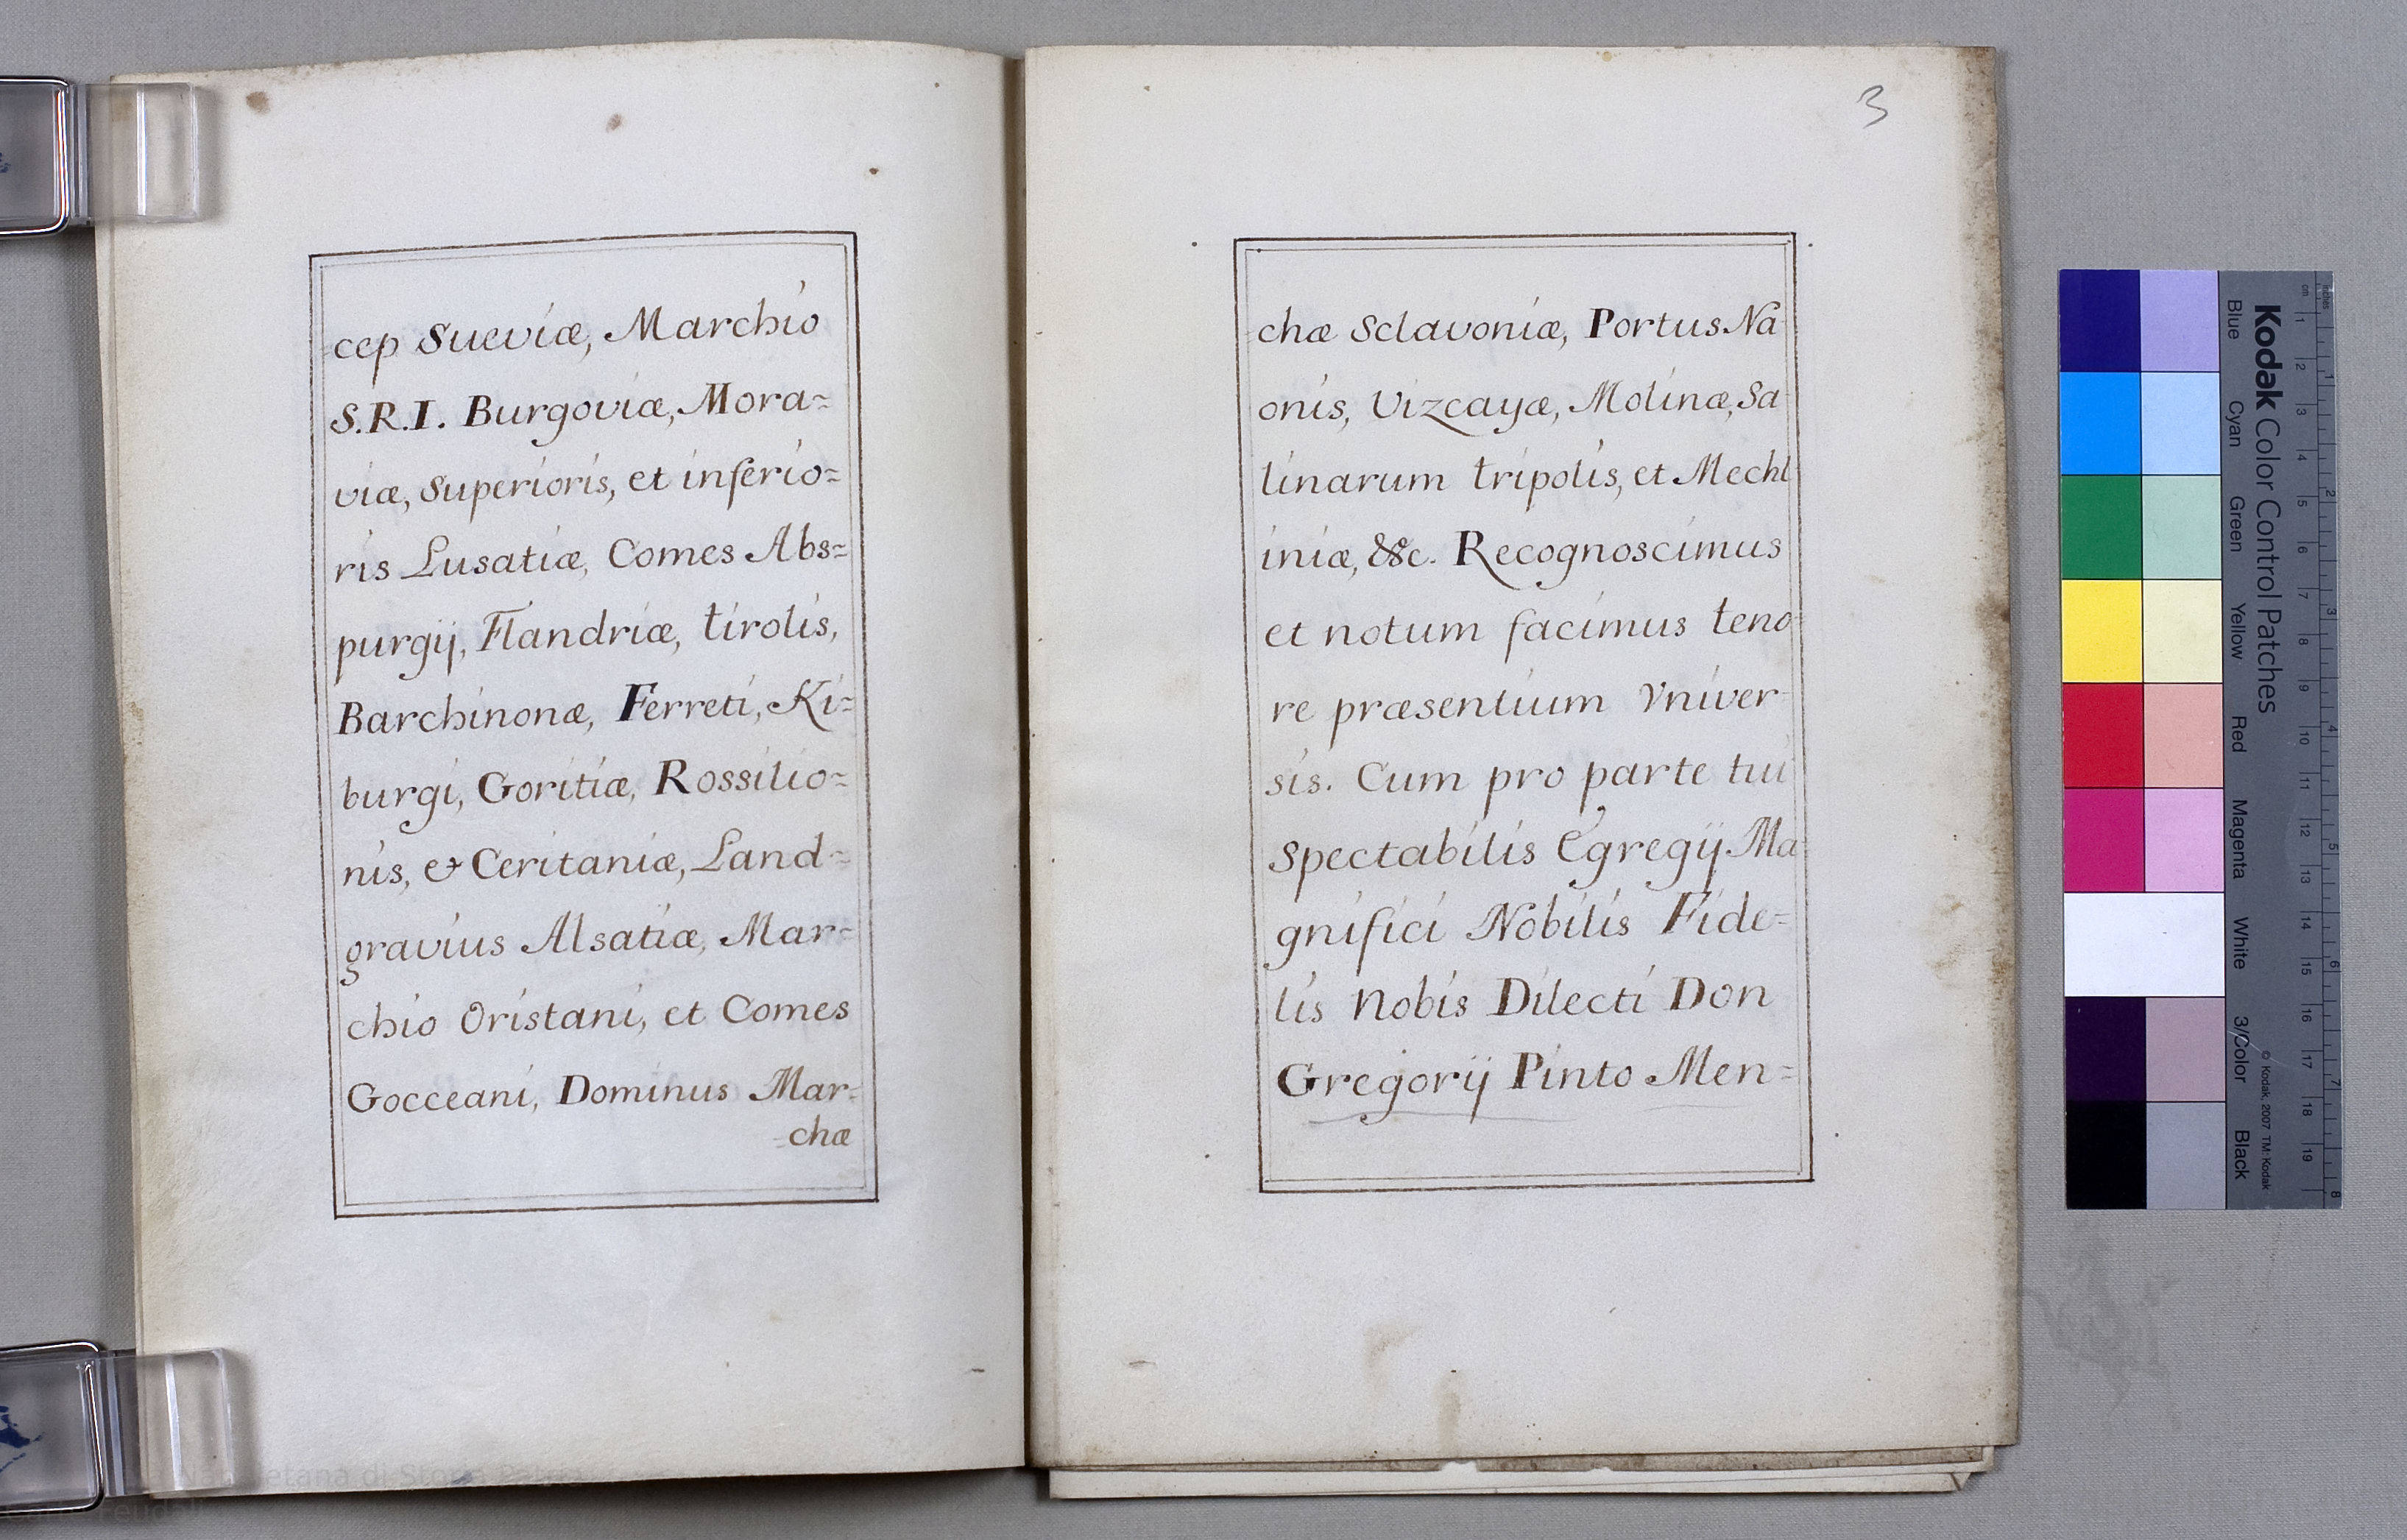 cep Sueviæ, Marchio
S.R.I. Burgoviæ, Mora=
viæ, Superioris, et inferio=
ris Lusatiæ, Comes Abs=
purgij, Flandriæ, tirolis,
Barchinonæ, Ferreti, Ki=
burgi, Goritiæ, Rossilio=
nis, & Ceritaniæ, Land=
gravius Alsatiæ, Mar=
chio Oristani, et Comes
Gocceani, Dominus Mar=
chæ
3
chæ Sclavoniæ, Portus Na
onis, Vizcayæ, Molinæ, Sa
linarum tripolis, et Mechl
iniæ, &c. Recognoscimus
et notum facimus teno
re præsentium Vniver-
sis. Cum pro parte tui
Spectabilis Egregij Ma
gnifici Nobilis Fide=
lis nobis Dilecti Don
Gregorij Pinto Men=
Kodak Color Control Patches
Blue Cyan Green Yellow Red Magenta White 3/Color Black
© Kodak, 2007 TM: Kodak
inches 1 2 3 4 5 6 7 8
cm 1 2 3 4 5 6 7 8 9 10 11 12 13 14 15 16 17 18 19
Napoletana di Storia Patria